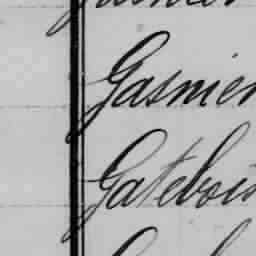 Gasnier
Gatebois